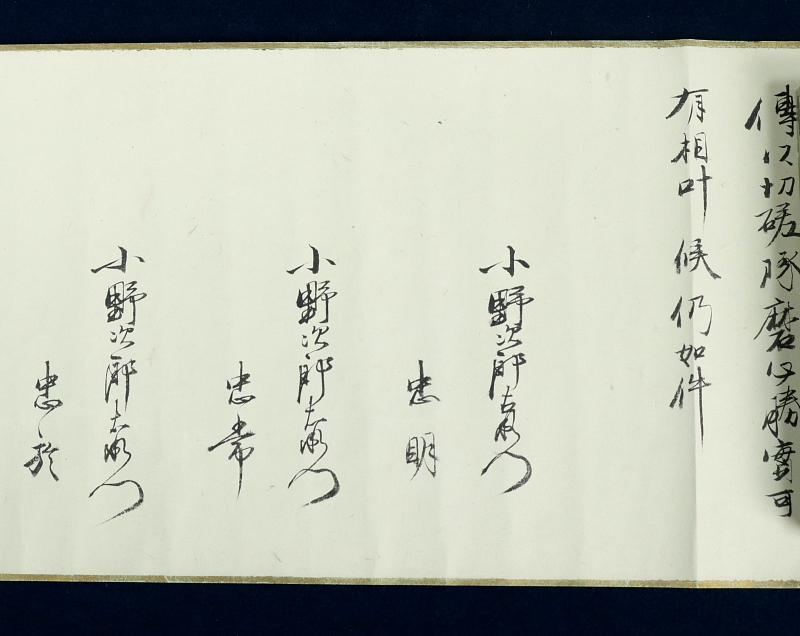 傳以切磋琢磨必勝実可
有相叶候仍如件
小野次郎右衛門
忠明
小野次郎右衛門
忠常
小野次郎右衛門
忠於